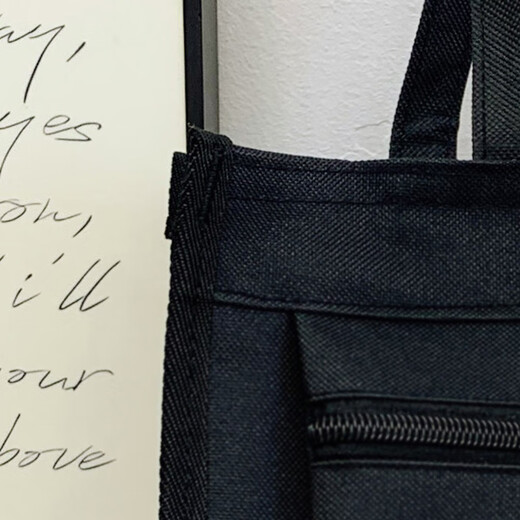 ay,
yes
on,
i'll
our
bove